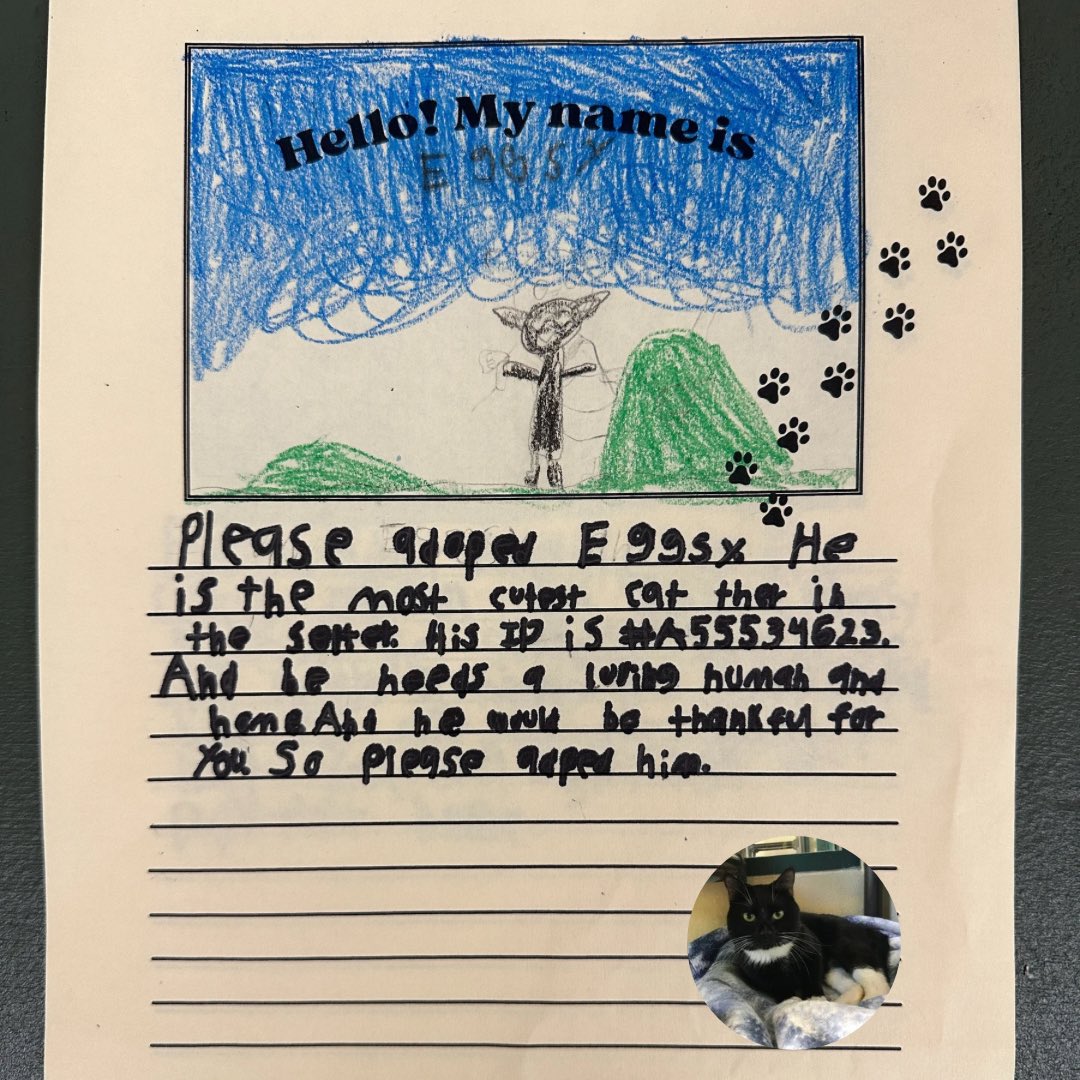 Hello! My name is
Eggsy
Please adoped Eggsy He
is the most cutest cat ther in
the selter. His ID is #A55534623.
And he needs a loving human and
home And he would be thankful for
you. So please adped him.